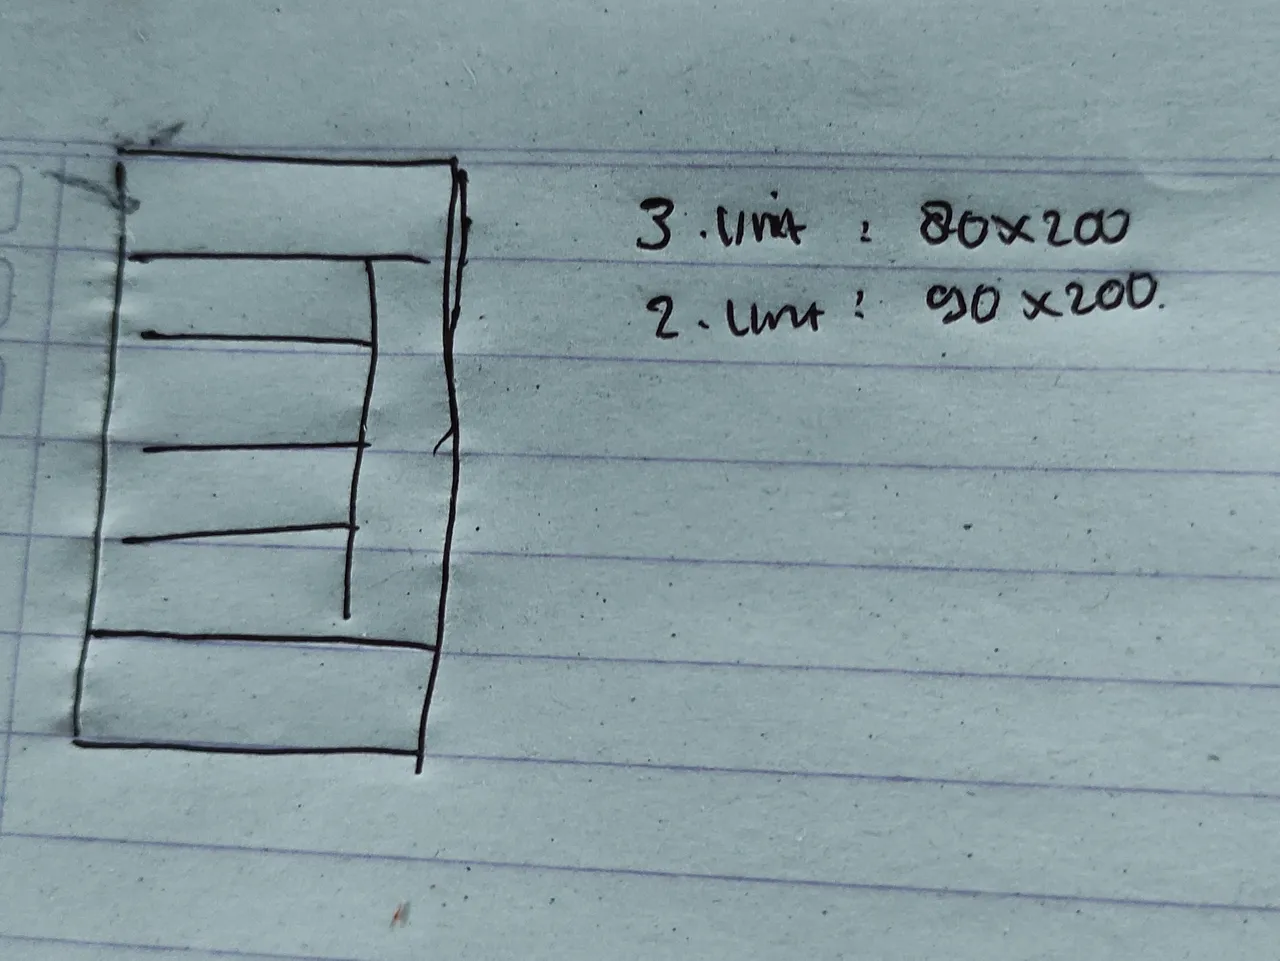 3. Unit : 80x200
2. Unit : 90x200.